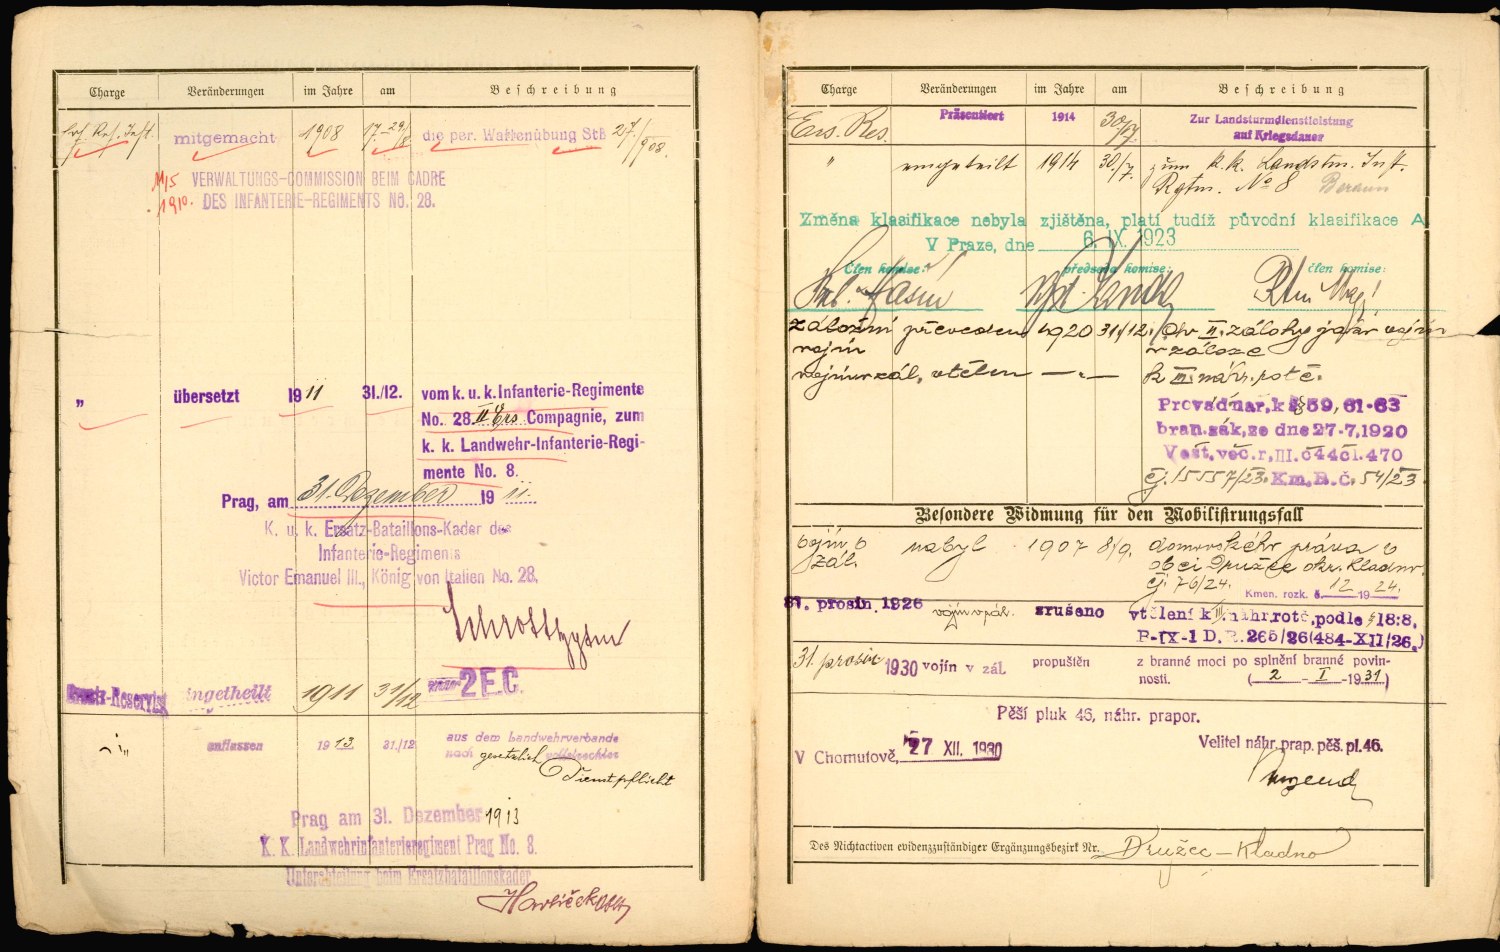 Charge Veränderungen im Jahre am Beschreibung
mitgemacht 1908 17.-29./8. die per. Waffenübung StB 27./908.
VERWALTUNGS-COMMISSION BEIM CADRE
1910. DES INFANTERIE-REGIMENTS No. 28.
„ übersetzt 1911 31./12. vom k. u. k. Infanterie-Regimente
No. 28 II Ers Compagnie, zum
k. k. Landwehr-Infanterie-Regi-
mente No. 8.
Prag, am 31. Dezember 1911.
K. u. k. Ersatz-Bataillons-Kader des
Infanterie-Regiments
Victor Emanuel III., König von Italien No. 28.
Ersatz-Reservist eingetheilt 1911 31/12 2 E.C.
1913. 31./12. aus dem Landwehrverbande
nach gesetzlich vollstreckter
Dienstpflicht
Prag am 31. Dezember 1913
K. K. Landwehrinfanterieregiment Prag No. 8.
Unterabteilung beim Ersatzbataillonskader
Havlíček
Charge Veränderungen im Jahre am Beschreibung
Ers. Res. Präsentiert 1914 30/7. Zur Landsturmdienstleistung
auf Kriegsdauer
„ eingeteilt 1914 30./7. zum k. k. Landstm. Inft.
Rgtm. No 8 Beraun
Změna klasifikace nebyla zjištěna, platí tudíž původní klasifikace A
V Praze, dne 6. IX. 1923
Člen komise: předseda komise: člen komise:
záložní převeden 1920 31/12. do II. zálohy jako vojín
vojín v záloze
vojín v zál. vtělen —„— k III. náhr. rotě.
Prováď nař. k § 59, 61-63
bran. zák. ze dne 27-7, 1920
Věst. věc. r, III. č 44 čl. 470
čj. 15557/23. Km. B. č. 54/23
Besondere Widmung für den Mobilisierungsfall
vojín v nabyl 1907 8/9. domovského práva v
zál. obci Družec okr. Kladno.
čj. 76/24. Kmen. rozk. č. 12 1924.
31. prosin. 1926 vojín v zál. zrušeno vtělení k III. náhr. rotě, podle § 18:8,
P-IX-1 D. B. 265/26 (484-XII/26.)
31. prosin 1930 vojín v zál. propuštěn z branné moci po splnění branné povin-
nosti. (2 - I - 1931)
Pěší pluk 46, náhr. prapor.
V Chomutově, 27 XII. 1930 Velitel náhr. prap. pěš. pl. 46.
Des Nichtactiven evidenzzuständiger Ergänzungsbezirk Nr. Družec – Kladno